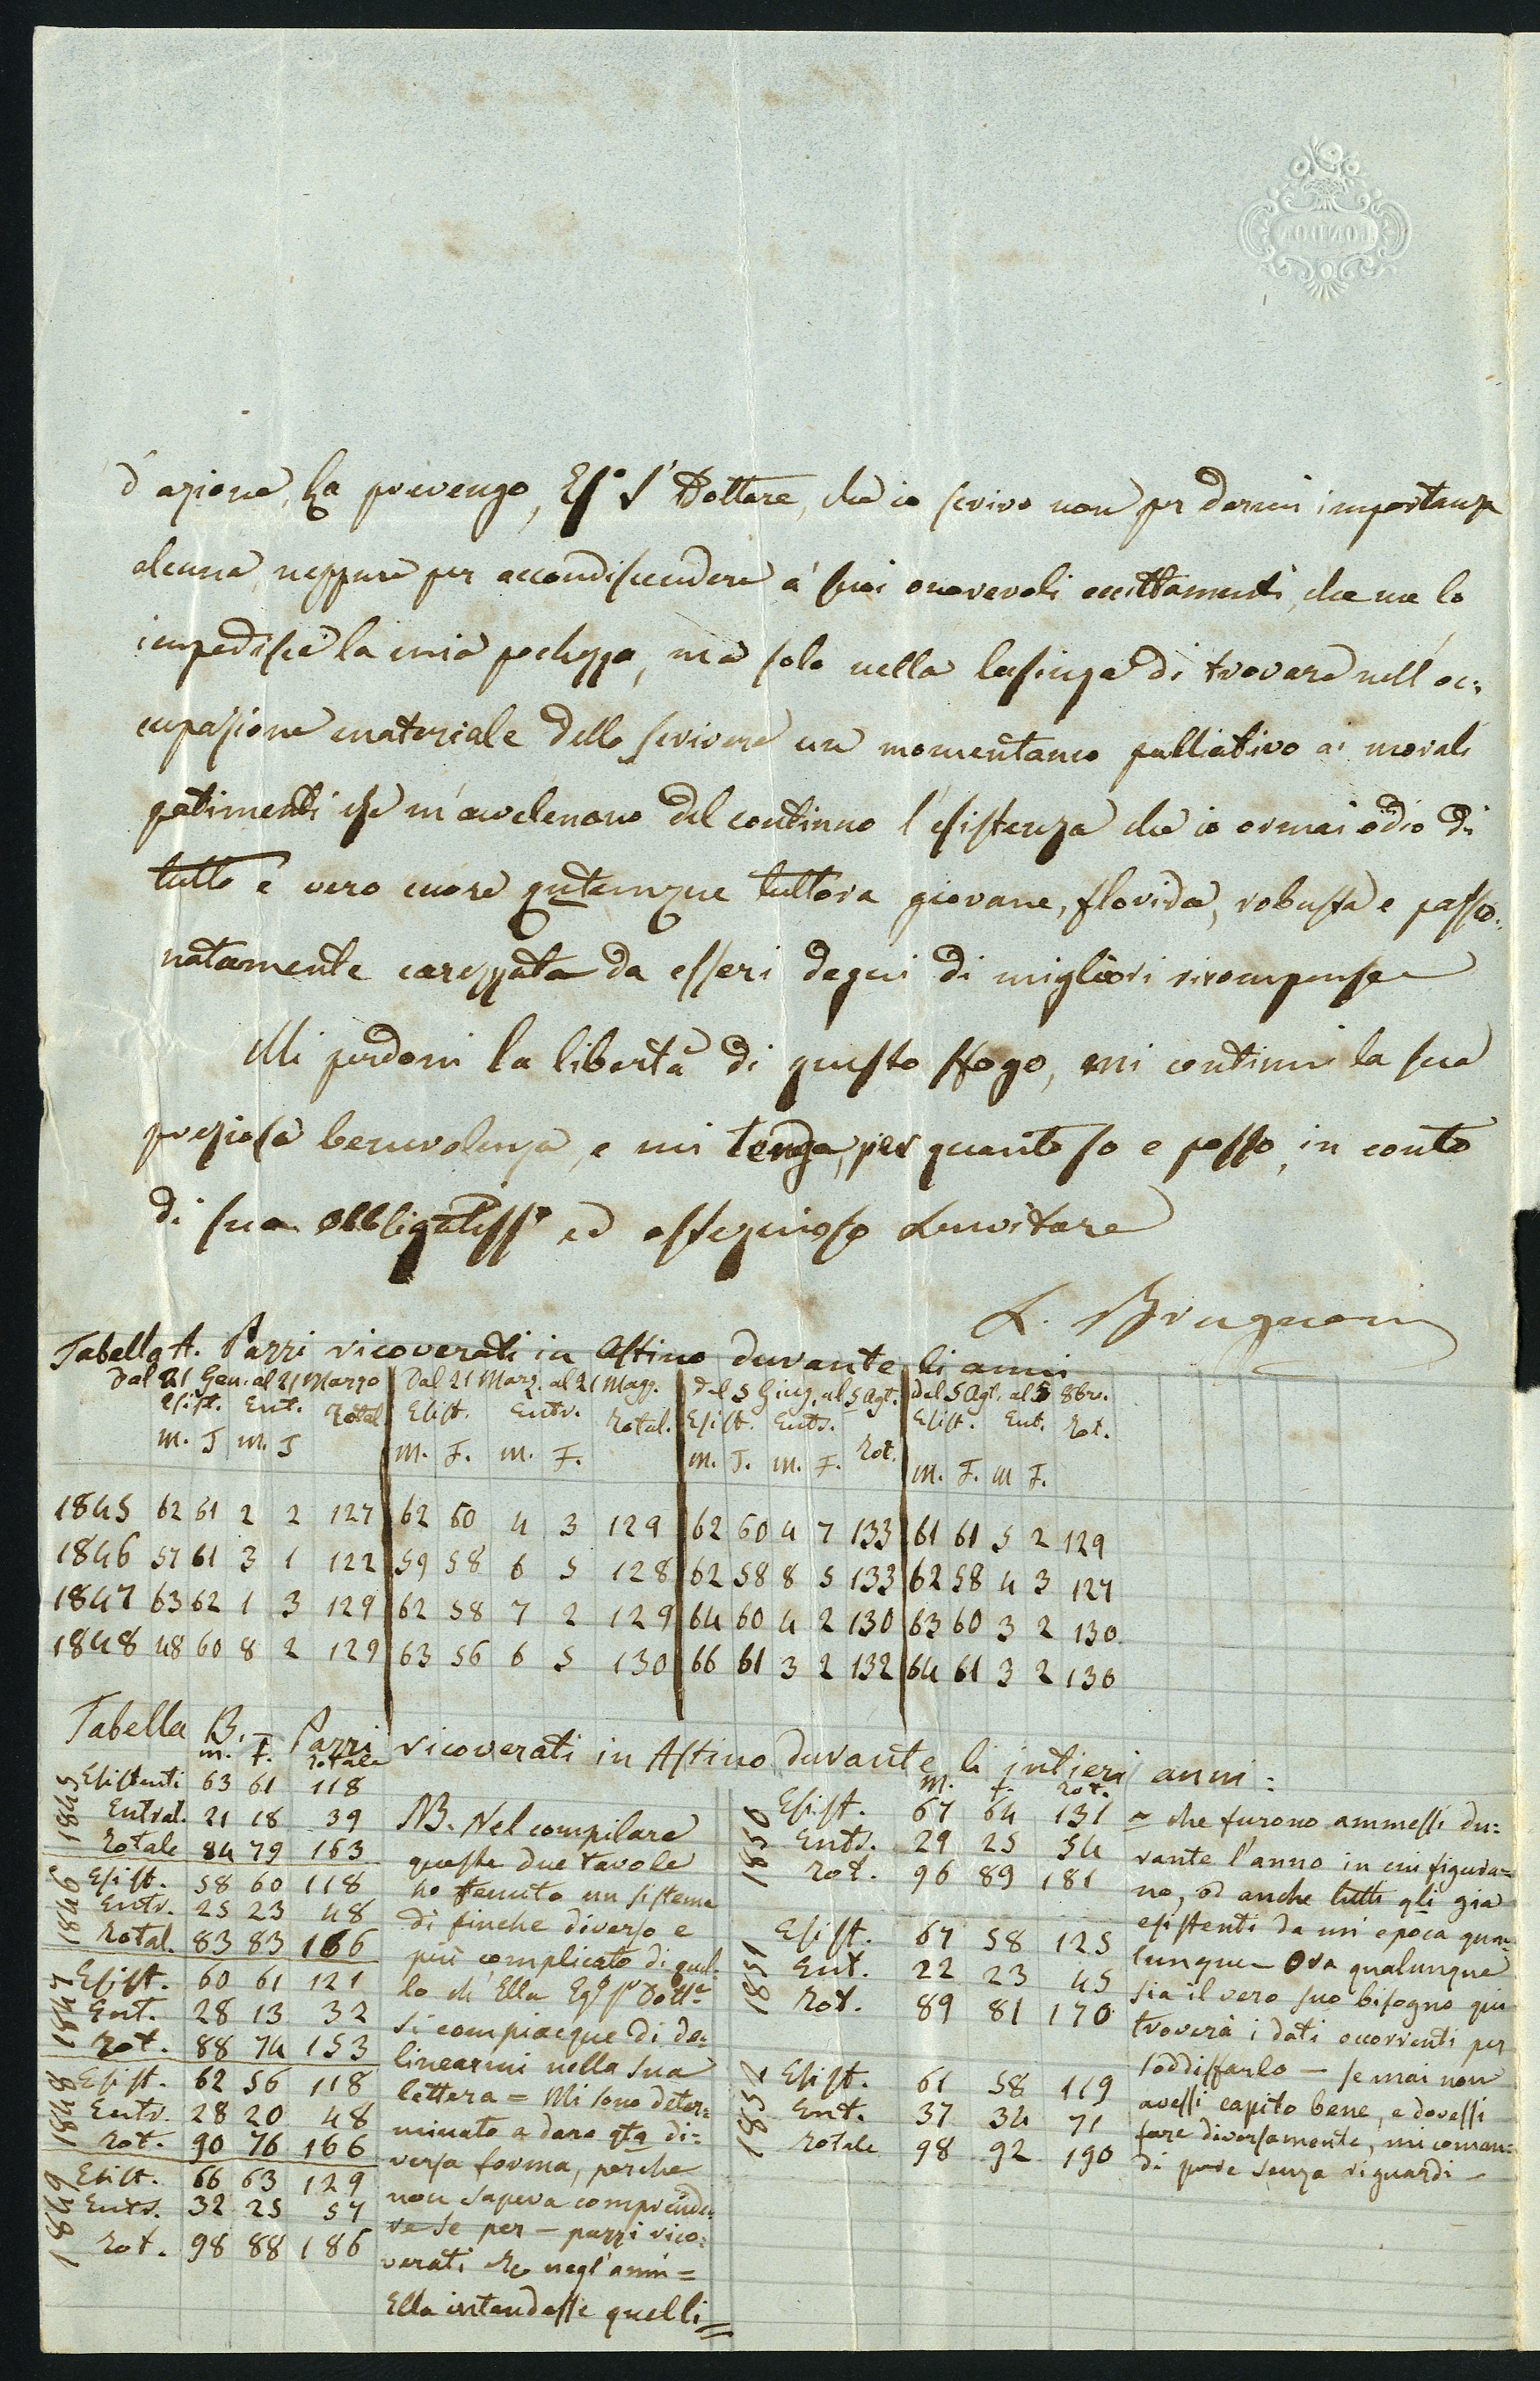 LONDON
d'azione, La prevengo, Eg.° S.r Dottore, che io scrivo non per darmi importanza
alcuna, neppure per accondiscendere a' suoi onorevoli eccittamenti, che me lo
impedisce la mia pochezza, ma solo nella lusinga di trovare nell'oc=
cupazione materiale dello scrivere un momentaneo palliativo ai morali
patimenti che m'avvelenano del continuo l'esistenza che io ormai odio di
tutto e vero cuore quantunque tuttora giovane, florida, robusta e passio=
natamente carezzata da esseri degni di migliori ricompense
Mi perdoni la libertà di questo sfogo, mi continui la sua
preziosa benevolenza, e mi tenga, per quanto so e posso, in conto
di suo obbligatiss.° ed ossequioso servitore
L. Brugnoni
Tabella A. Pazzi ricoverati in Astino durante li anni
Dal 21 Gen. al 21 Marzo Dal 21 Marz. al 21 Magg. Dal 5 Giug. al 5 Agt. Dal 5 Agt. al 5 8bre.
Esist. Ent. Total. Esist. Entr. Total. Esist. Entr. Tot. Esist. Ent. Tot.
M. F M. F M. F. M. F. M. F. M. F. M. F. M F.
1845 62 61 2 2 127 62 60 4 3 129 62 60 4 7 133 61 61 5 2 129
1846 57 61 3 1 122 59 58 6 5 128 62 58 8 5 133 62 58 4 3 127
1847 63 62 1 3 129 62 58 7 2 129 64 60 4 2 130 63 60 3 2 130
1848 48 60 8 2 129 63 56 6 5 130 66 61 3 2 132 64 61 3 2 130
Tabella B. Pazzi ricoverati in Astino durante li intieri anni:
M. F. Totale
1845
Esistenti 63 61 118
Entrat. 21 18 39
Totale 84 79 163
1846
Esist. 58 60 118
Entr. 25 23 48
Total. 83 83 166
1847
Esist. 60 61 121
Ent. 28 13 32
Tot. 88 74 153
1848
Esist. 62 56 118
Entr. 28 20 48
Tot. 90 76 166
1849
Esist. 66 63 129
Entr. 32 25 57
Tot. 98 88 186
NB. Nel compilare
queste due tavole
ho tenuto un sistema
di finche diverso e
più complicato di quel=
lo ch'Ella Eg.° S.r Dott.e
si compiacque di de=
linearmi nella sua
lettera = Mi sono deter=
minato a dare qta di=
versa forma, perche
non sapeva comprende=
re se per — pazzi rico=
verati &c negl'anni =
Ella intendesse quelli=
M. F. Tot.
1850
Esist. 67 64 131
Entr. 29 25 54
Tot. 96 89 181
1851
Esist. 67 58 125
Ent. 22 23 45
Tot. 89 81 170
1852
Esist. 61 58 119
Ent. 37 34 71
Totale 98 92 190
= che furono ammessi du=
rante l'anno in cui figura=
no, od anche tutti gli gia
esistenti da un'epoca qua=
lunque — Ora qualunque
sia il vero suo bisogno qui
troverà i dati occorrenti per
soddisfarlo — se mai non
avessi capito bene, e dovessi
fare diversamente, mi coman=
di pure senza riguardi —